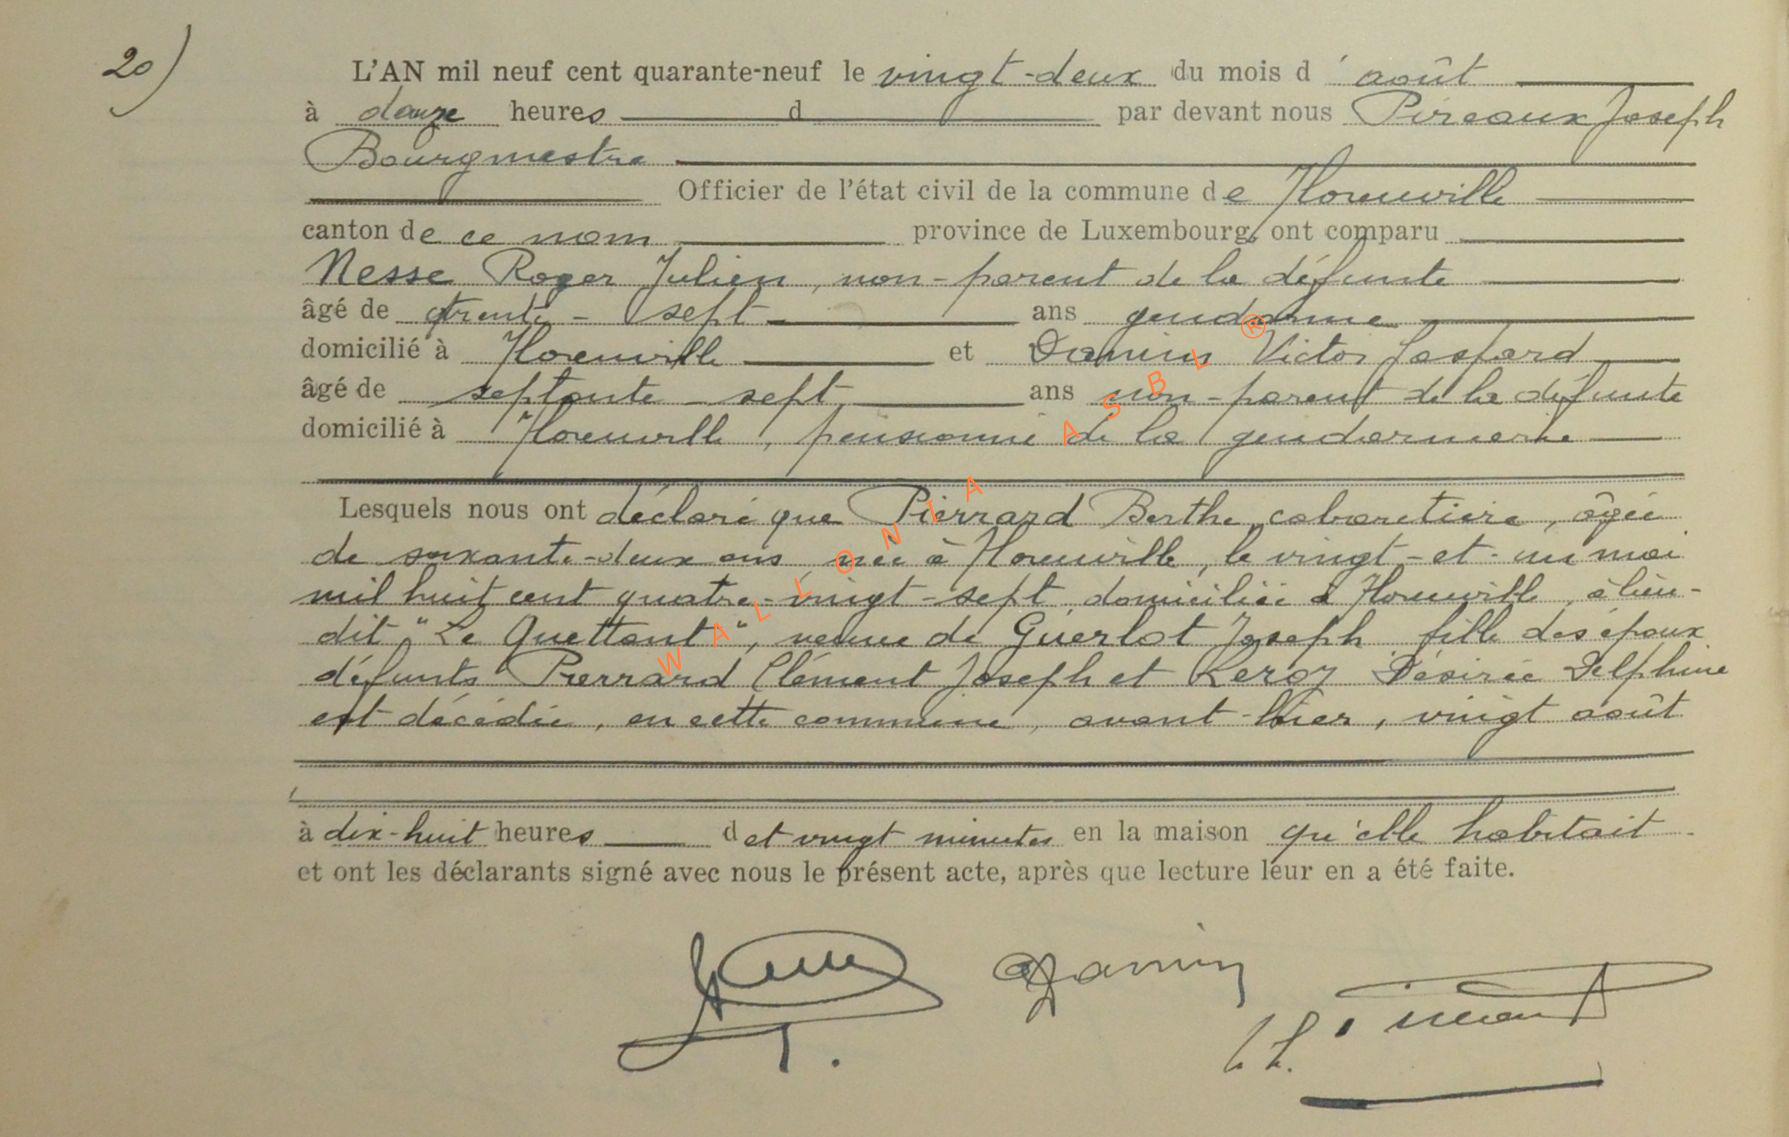 20)
L'AN mil neuf cent quarante-neuf le vingt-deux du mois d'août
à douze heures d par devant nous Pireaux Joseph
Bourgmestre
Officier de l'état civil de la commune de Florenville
canton de ce nom province de Luxembourg, ont comparu
Nesse Roger Julien, non-parent de la défunte
âgé de trente-sept ans gendarme
domicilié à Florenville et Damin Victor Gaspard
âgé de septante-sept ans non-parent de la défunte
domicilié à Florenville, pensionné de la gendarmerie
Lesquels nous ont déclaré que Pierrard Berthe, cabaretière, âgée
de soixante-deux ans née à Florenville, le vingt-et-un mai
mil huit cent quatre-vingt-sept, domiciliée à Florenville, à lieu-
dit "Le Quettant", veuve de Guerlot Joseph fille des époux
défunts Pierrard Clément Joseph et Leroy Désirée Delphine
est décédée, en cette commune, avant-hier, vingt août
à dix-huit heures d et vingt minutes en la maison qu'elle habitait
et ont les déclarants signé avec nous le présent acte, après que lecture leur en a été faite.
Damin
WALLONIA ASBL ®